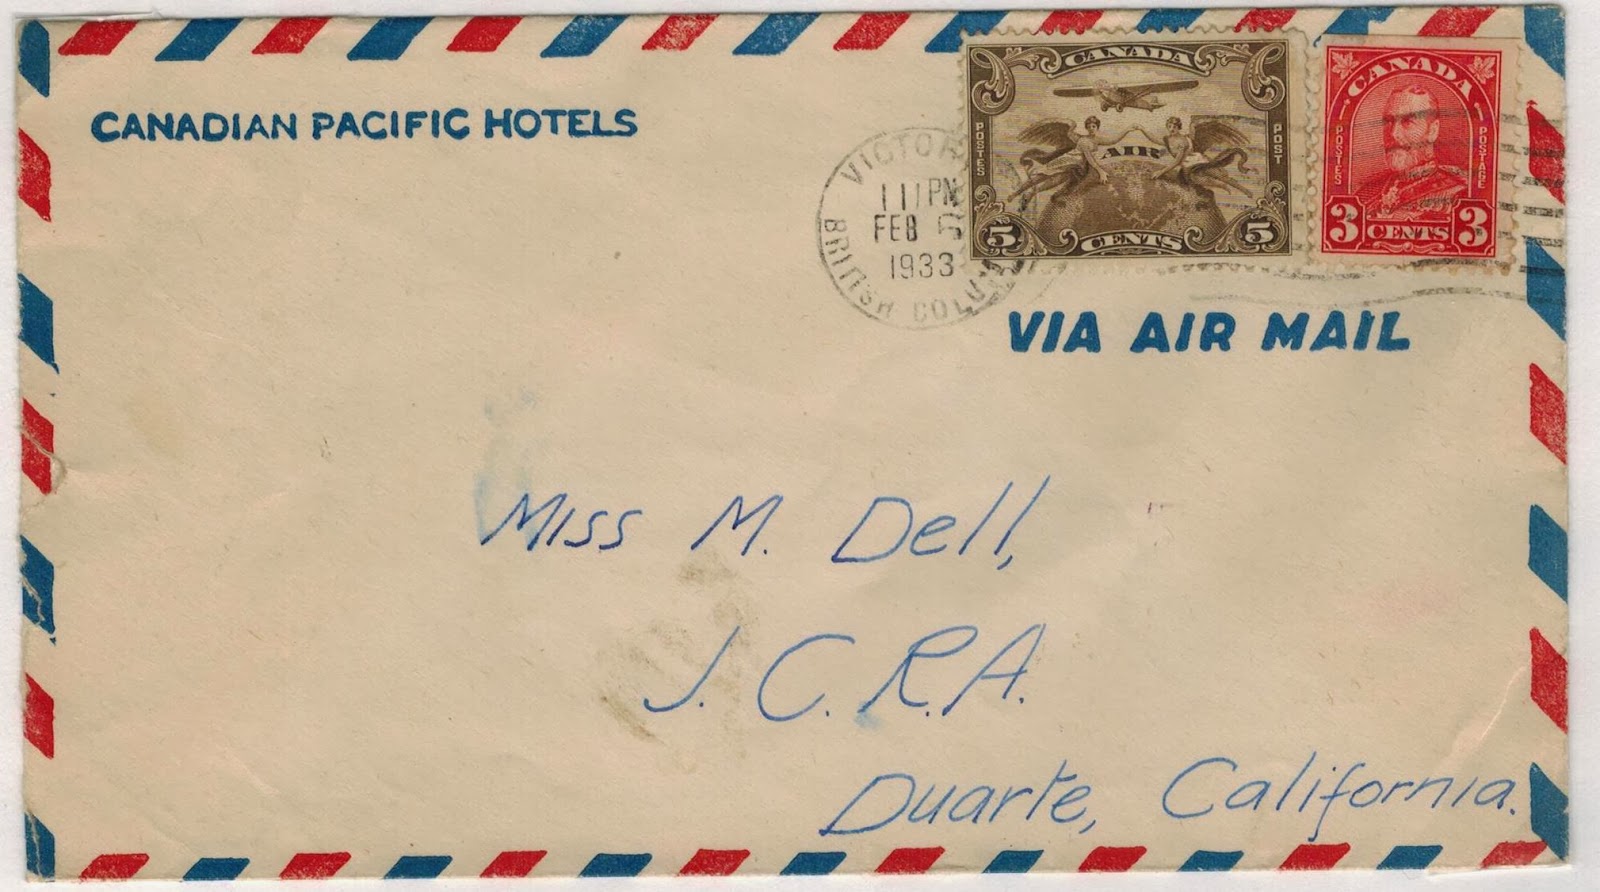 CANADIAN PACIFIC HOTELS
VICTOR
11 PM
FEB 5
1933
BRITISH COLU
CANADA
POSTES
POST
AIR
5 CENTS 5
CANADA
POSTES
POSTAGE
3 CENTS 3
VIA AIR MAIL
Miss M. Dell,
J.C.R.A.
Duarte, California.